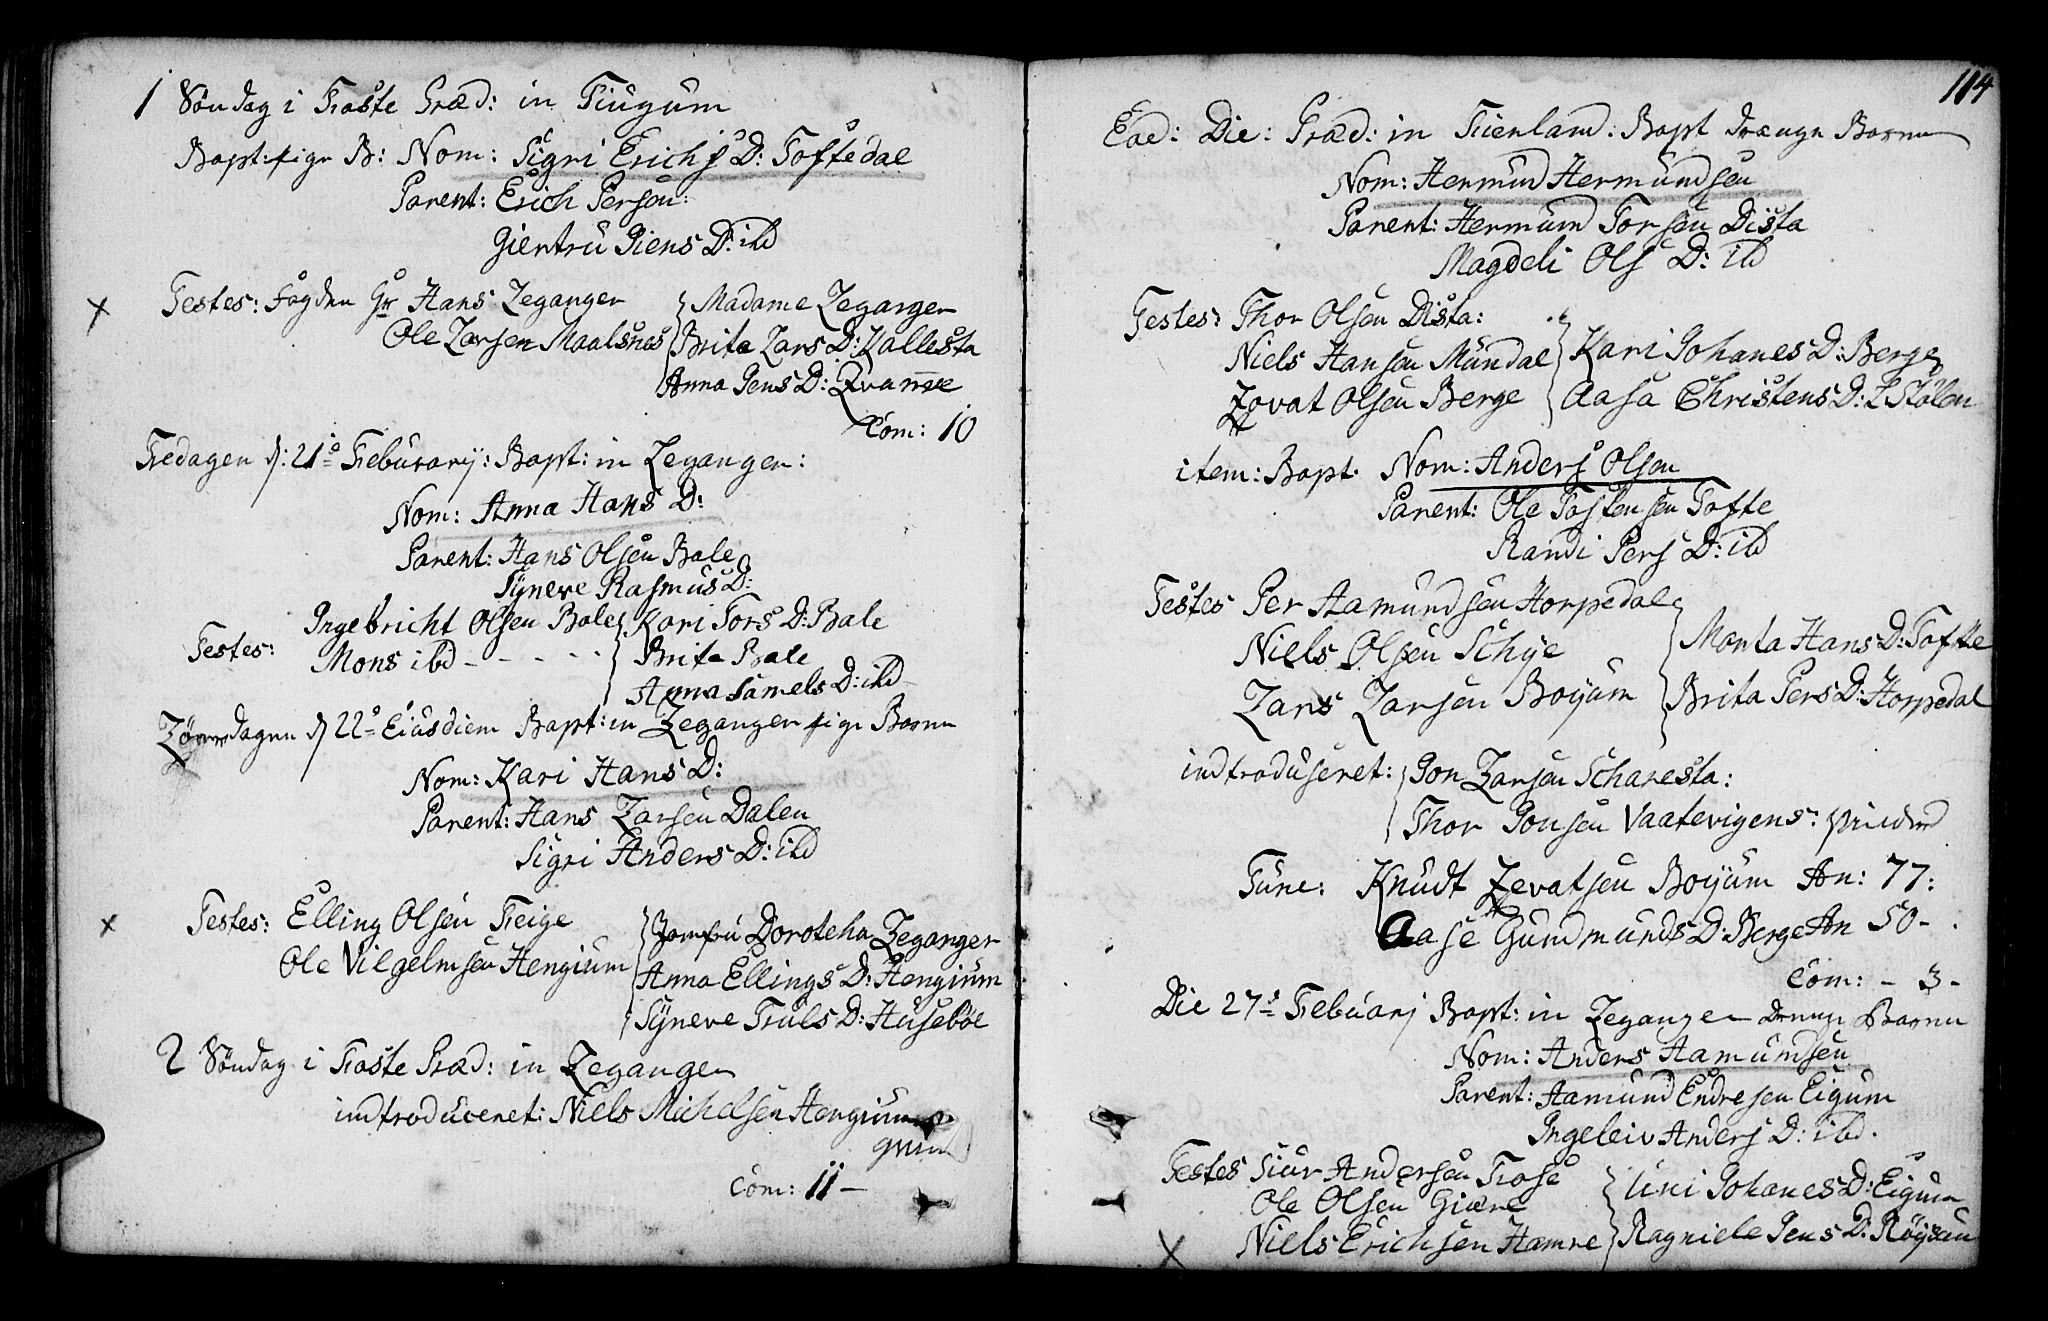 1 Söndag i Faste Præd: in Tiugum
Bapt: pige B: Nom: Sigri Erichs D: Toftedal
Parent: Erich Persen:
Giertru Jens D: ibd
Testes: Fogden Hr Hans Leganger { Madame Leganger
Ole Larsen Maalsnes { Brita Lars D: Kallesta
Anna Jens D: Qvamme
Com: 10
Fredagen d: 21de Februarij: Bapt: in Leganger:
Nom: Anna Hans D:
Parent: Hans Olsen Bale
Syneve Rasmus D:
Testes: Ingebricht Olsen Bale { Kari Tors D: Bale
Mons ibd - - - - { Brita Bale
Anna Samels D: ibd
Löverdagen d 22de Eiusdiem Bapt: in Leganger pige Barn
Nom: Kari Hans D:
Parent: Hans Larsen Dalen
Sigri Anders D: ibd
Testes: Elling Olsen Feige { Jomfru Doroteha Leganger
Ole Vilgelmsen Hengium { Anna Ellings D: Hengium
{ Syneve Truls D: Huseböe
2 Söndag i Faste Præd: in Leganger
indtroduceret: Niels Michelsen Hengium
Com: 11 -
114
Ead: Die: Præd: in Fierland: Bapt drænge Barn
Nom: Hermund Hermundsen
Parent: Hermund Torsen Dista
Magdeli Ols D: ibd
Testes: Thor Olsen Dista:
Niels Hansen Mundal { Kari Johanes D: Berge
Lovat Olsen Berge { Aasa Christens D: Stölen
item: Bapt. Nom: Anders Olsen
Parent: Ole Tostensen Tofte
Randi Pers D: ibd
Testes Per Aamundsen Horpedal
Niels Olsen Schye { Marta Hans D: Tofte
Lars Larsen Boyum { Brita Pers D: Horpedal
indtroduseret: { Jon Larsen Scharesta:
{ Thor Jonsen Vaatevigens:
Fune: Knudt Levatsen Boyum An: 77:
Aase Gundmunds D: Berge An 50 -
Com: - 3 -
Die 27de Februarj Bapt: in Leganger Drenge Barn
Nom: Anders Aamundsen
Parent: Aamund Endresen Eigum
Ingeleiv Anders D: ibd.
Testes Siur Andersen Frose { Uni Johanes D: Eigum
Ole Olsen Giære
Niels Erichsen Hamre { Ragniele Jens D: Röysum